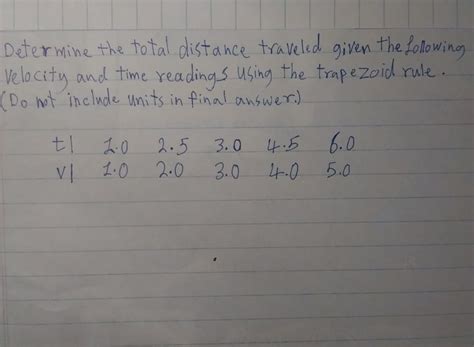 Determine the total distance traveled given the following
velocity and time readings using the trapezoid rule.
(Do not include units in final answer.)
t| 1.0 2.5 3.0 4.5 6.0
v| 1.0 2.0 3.0 4.0 5.0